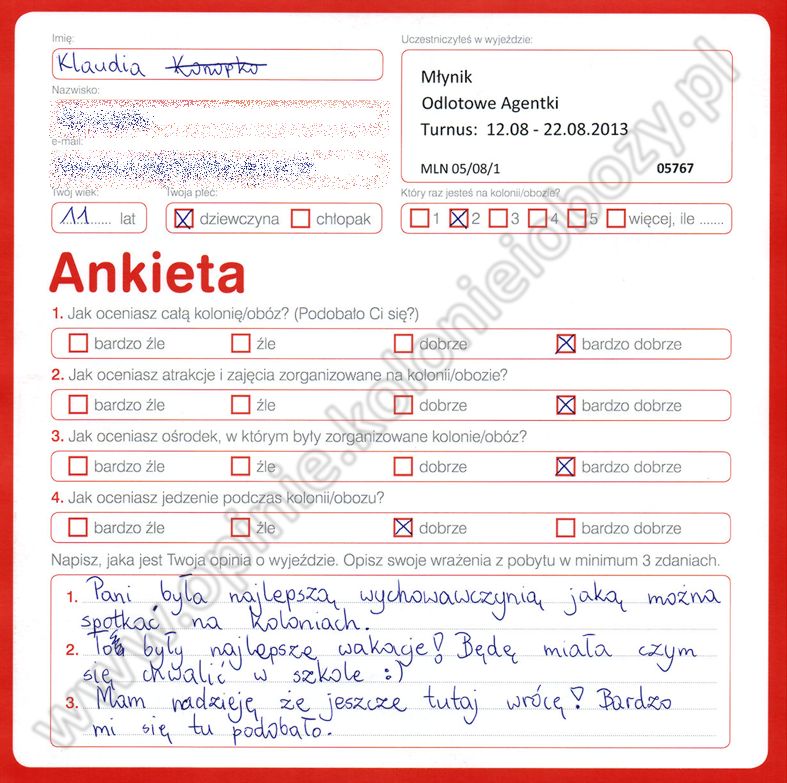 Imię:
Klaudia Konopko
Uczestniczyłeś w wyjeździe:
Młynik
Odlotowe Agentki
Turnus: 12.08 - 22.08.2013
MLN 05/08/1 05767
Nazwisko:
e-mail:
Twój wiek:
11 lat
Twoja płeć:
dziewczyna chłopak
Który raz jesteś na kolonii/obozie?
1 2 3 4 5 więcej, ile .......
Ankieta
1. Jak oceniasz całą kolonię/obóz? (Podobało Ci się?)
bardzo źle źle dobrze bardzo dobrze
2. Jak oceniasz atrakcje i zajęcia zorganizowane na kolonii/obozie?
bardzo źle źle dobrze bardzo dobrze
3. Jak oceniasz ośrodek, w którym były zorganizowane kolonie/obóz?
bardzo źle źle dobrze bardzo dobrze
4. Jak oceniasz jedzenie podczas kolonii/obozu?
bardzo źle źle dobrze bardzo dobrze
Napisz, jaka jest Twoja opinia o wyjeździe. Opisz swoje wrażenia z pobytu w minimum 3 zdaniach.
1. Pani była najlepszą wychowawczynią jaką można
spotkać na koloniach.
2. To były najlepsze wakacje! Będę miała czym
się chwalić w szkole :)
3. Mam nadzieję że jeszcze tutaj wrócę! Bardzo
mi się tu podobało.
www.opinie.kolonieiobozy.pl